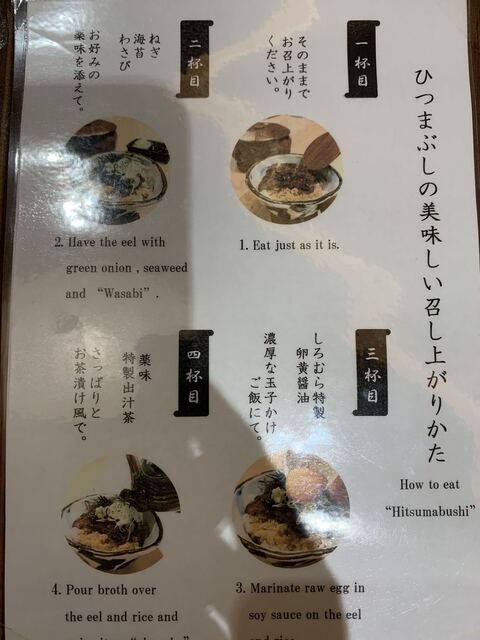 ひつまぶしの美味しい召し上がりかた
How to eat
“Hitsumabushi”
一杯目
そのままで
お召上がり
ください。
1. Eat just as it is.
二杯目
ねぎ
海苔
わさび
お好みの
薬味を添えて。
2. Have the eel with
green onion , seaweed
and “Wasabi” .
三杯目
しろむら特製
卵黄醤油
濃厚な玉子かけ
ご飯にて。
3. Marinate raw egg in
soy sauce on the eel
and rice
四杯目
薬味
特製出汁茶
さっぱりと
お茶漬け風で。
4. Pour broth over
the eel and rice and